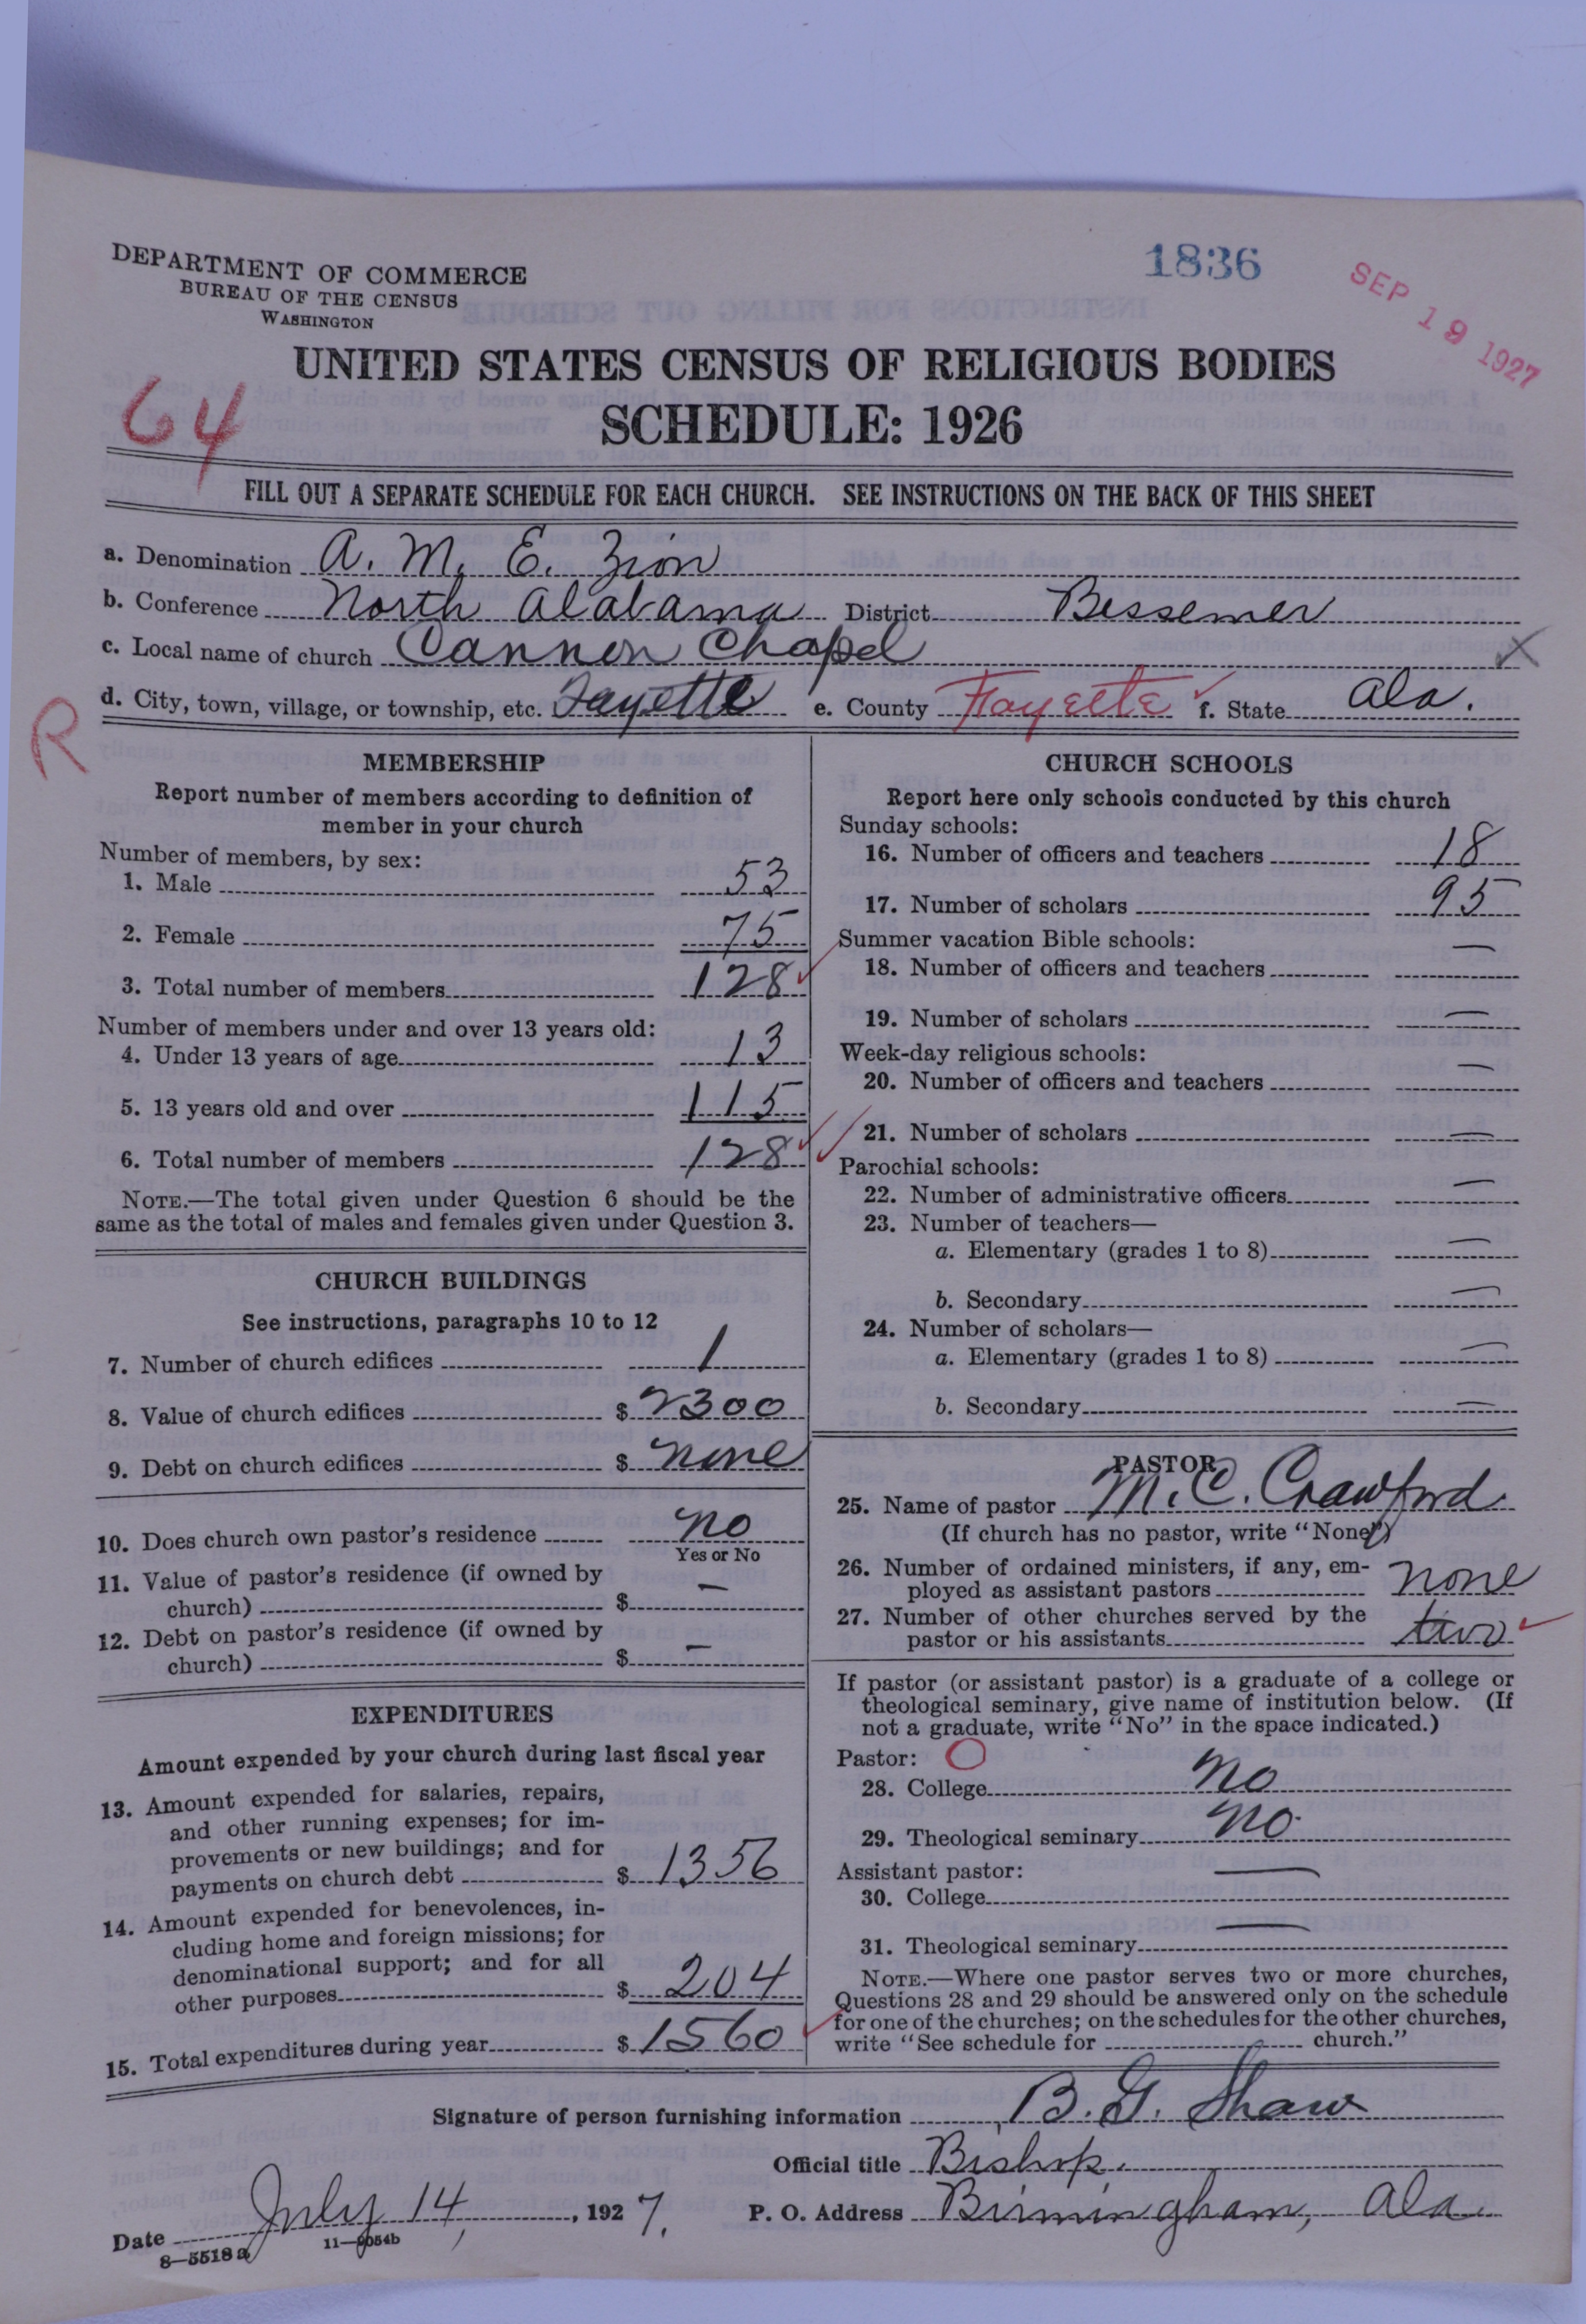 DEPARTMENT OF COMMERCE
BUREAU OF THE CENSUS
WASHINGTON
1836
SEP 19 1927
UNITED STATES CENSUS OF RELIGIOUS BODIES
SCHEDULE: 1926
64
FILL OUT A SEPARATE SCHEDULE FOR EACH CHURCH. SEE INSTRUCTIONS ON THE BACK OF THIS SHEET
a. Denomination A. M. E. Zion
b. Conference North Alabama District Bessemer
c. Local name of church Cannon Chapel
d. City, town, village, or township, etc. Fayette e. County Fayette f. State Ala.
R
MEMBERSHIP
Report number of members according to definition of
member in your church
Number of members, by sex:
1. Male 53
2. Female 75
3. Total number of members 128
Number of members under and over 13 years old:
4. Under 13 years of age 13
5. 13 years old and over 115
6. Total number of members 128
NOTE.—The total given under Question 6 should be the
same as the total of males and females given under Question 3.
CHURCH BUILDINGS
See instructions, paragraphs 10 to 12
7. Number of church edifices 1
8. Value of church edifices $ 2300
9. Debt on church edifices $ none
10. Does church own pastor's residence no
Yes or No
11. Value of pastor's residence (if owned by
church) $ —
12. Debt on pastor's residence (if owned by
church) $ —
EXPENDITURES
Amount expended by your church during last fiscal year
13. Amount expended for salaries, repairs,
and other running expenses; for im-
provements or new buildings; and for
payments on church debt $ 1356
14. Amount expended for benevolences, in-
cluding home and foreign missions; for
denominational support; and for all
other purposes $ 204
15. Total expenditures during year $ 1560
CHURCH SCHOOLS
Report here only schools conducted by this church
Sunday schools:
16. Number of officers and teachers 18
17. Number of scholars 95
Summer vacation Bible schools:
18. Number of officers and teachers —
19. Number of scholars —
Week-day religious schools:
20. Number of officers and teachers —
21. Number of scholars —
Parochial schools:
22. Number of administrative officers —
23. Number of teachers—
a. Elementary (grades 1 to 8) —
b. Secondary —
24. Number of scholars—
a. Elementary (grades 1 to 8) —
b. Secondary —
PASTOR
25. Name of pastor M. C. Crawford
(If church has no pastor, write "None")
26. Number of ordained ministers, if any, em-
ployed as assistant pastors none
27. Number of other churches served by the
pastor or his assistants two
If pastor (or assistant pastor) is a graduate of a college or
theological seminary, give name of institution below. (If
not a graduate, write "No" in the space indicated.)
Pastor: O
28. College no
29. Theological seminary no.
Assistant pastor:
30. College —
31. Theological seminary —
NOTE.—Where one pastor serves two or more churches,
Questions 28 and 29 should be answered only on the schedule
for one of the churches; on the schedules for the other churches,
write "See schedule for church."
Signature of person furnishing information B. G. Shaw
Official title Bishop.
Date July 14, 1927. P. O. Address Birmingham, Ala.
8—5518 a 11—9054b